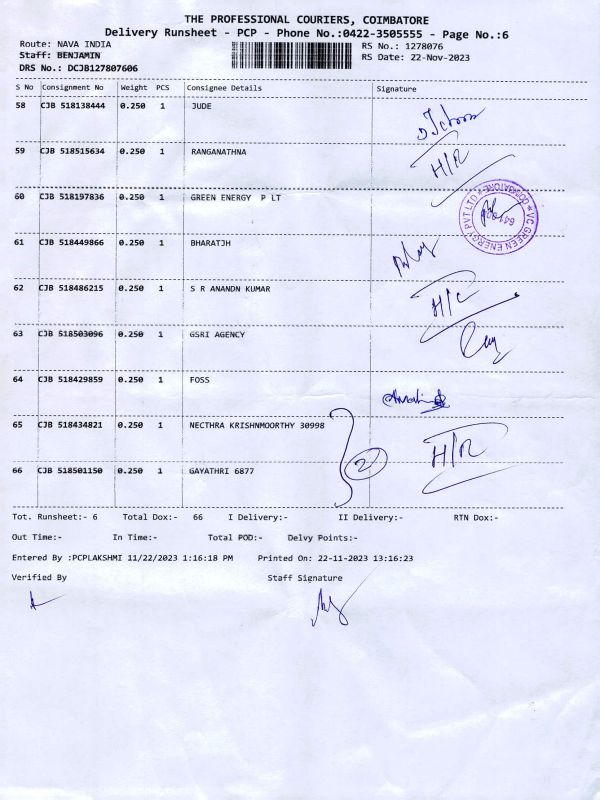 THE PROFESSIONAL COURIERS, COIMBATORE
Delivery Runsheet - PCP - Phone No.:0422-3505555 - Page No.:6
Route: NAVA INDIA RS No.: 1278076
Staff: BENJAMIN RS Date: 22-Nov-2023
DRS No.: DCJB127807606
S No Consignment No Weight PCS Consignee Details Signature
58 CJB 518138444 0.250 1 JUDE
59 CJB 518515634 0.250 1 RANGANATHNA H/R
60 CJB 518197836 0.250 1 GREEN ENERGY P LT
VC GREEN ENERGY PVT LTD * COIMBATORE *
61 CJB 518449866 0.250 1 BHARATJH
62 CJB 518486215 0.250 1 S R ANANDN KUMAR H/C
63 CJB 518503096 0.250 1 GSRI AGENCY
64 CJB 518429859 0.250 1 FOSS
65 CJB 518434821 0.250 1 NECTHRA KRISHNMOORTHY 30998 H/R
2
66 CJB 518501150 0.250 1 GAYATHRI 6877
Tot. Runsheet:- 6 Total Dox:- 66 I Delivery:- II Delivery:- RTN Dox:-
Out Time:- In Time:- Total POD:- Delvy Points:-
Entered By :PCPLAKSHMI 11/22/2023 1:16:18 PM Printed On: 22-11-2023 13:16:23
Verified By Staff Signature